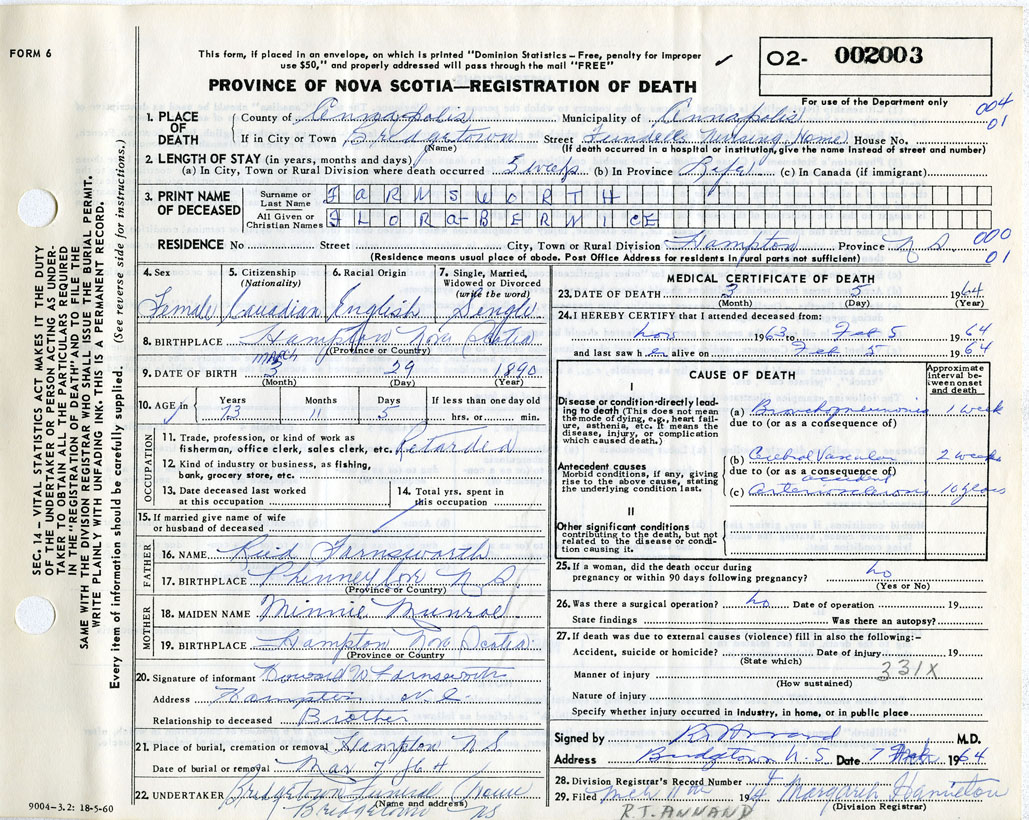 FORM 6
This form, if placed in an envelope, on which is printed "Dominion Statistics – Free, penalty for improper
use $50," and properly addressed will pass through the mail "FREE"
✓
02- 002003
For use of the Department only
PROVINCE OF NOVA SCOTIA—REGISTRATION OF DEATH
004
01
1. PLACE OF DEATH
County of Annapolis Municipality of Annapolis
If in City or Town Bridgetown Street Nursing Home) House No.
(Name) (If death occurred in a hospital or institution, give the name instead of street and number)
2. LENGTH OF STAY (in years, months and days)
(a) In City, Town or Rural Division where death occurred 3 weeks (b) In Province Life (c) In Canada (if immigrant)
3. PRINT NAME OF DECEASED
Surname or Last Name FARNSWORTH
All Given or Christian Names FLORA-BERNICE
RESIDENCE No Street City, Town or Rural Division Hampton Province N S
000
01
(Residence means usual place of abode. Post Office Address for residents in rural parts not sufficient)
4. Sex Female
5. Citizenship (Nationality) Canadian
6. Racial Origin English
7. Single, Married, Widowed or Divorced (write the word) Single
8. BIRTHPLACE Hampton Nova Scotia
(Province or Country)
9. DATE OF BIRTH March 3 29 1890
(Month) (Day) (Year)
10. AGE in Years 73 Months 11 Days 5 If less than one day old hrs. or min.
OCCUPATION
11. Trade, profession, or kind of work as
fisherman, office clerk, sales clerk, etc. Retarded
12. Kind of industry or business, as fishing,
bank, grocery store, etc.
13. Date deceased last worked at this occupation
14. Total yrs. spent in this occupation
15. If married give name of wife
or husband of deceased
FATHER
16. NAME Reid Farnsworth
17. BIRTHPLACE Phinney Cove N S
(Province or Country)
MOTHER
18. MAIDEN NAME Minnie Munroe
19. BIRTHPLACE Hampton Nova Scotia
(Province or Country
20. Signature of informant Howard W Farnsworth
Address Hampton N.S.
Relationship to deceased Brother
21. Place of burial, cremation or removal Hampton N S
Date of burial or removal Mar 7 / 64
22. UNDERTAKER Bridgetown Funeral Home
(Name and address)
Bridgetown NS
9004-3.2: 18-5-60
MEDICAL CERTIFICATE OF DEATH
23. DATE OF DEATH 3 5 1964
(Month) (Day) (Year)
24. I HEREBY CERTIFY that I attended deceased from:
Nov 1963 to Feb 5 64
and last saw h er alive on Feb 5 1964
CAUSE OF DEATH
Approximate interval between onset and death
I
Disease or condition directly leading to death (This does not mean the mode of dying, e.g., heart failure, asthenia, etc. It means the disease, injury, or complication which caused death.)
(a) Bronchopneumonia 1 week
due to (or as a consequence of)
Antecedent causes
Morbid conditions, if any, giving rise to the above cause, stating the underlying condition last.
(b) Cerebral Vascular accident 2 weeks
due to (or as a consequence of)
(c) Arteriosclerosis 10 years
II
Other significant conditions
contributing to the death, but not related to the disease or condition causing it.
25. If a woman, did the death occur during
pregnancy or within 90 days following pregnancy? no
(Yes or No)
26. Was there a surgical operation? no Date of operation 19
State findings Was there an autopsy?
27. If death was due to external causes (violence) fill in also the following:–
Accident, suicide or homicide? Date of injury 19
(State which)
Manner of injury 331X
(How sustained)
Nature of injury
Specify whether injury occurred in industry, in home, or in public place
Signed by M.D.
Address Bridgetown N.S. Date 7 1964
28. Division Registrar's Record Number 4
29. Filed 11th 19
(Division Registrar)
R.J. ANNAND
SEC. 14 – VITAL STATISTICS ACT MAKES IT THE DUTY
OF THE UNDERTAKER OR PERSON ACTING AS UNDER-
TAKER TO OBTAIN ALL THE PARTICULARS REQUIRED
IN THE "REGISTRATION OF DEATH" AND TO FILE THE
SAME WITH THE DIVISION REGISTRAR WHO SHALL ISSUE THE BURIAL PERMIT.
WRITE PLAINLY WITH UNFADING INK. THIS IS A PERMANENT RECORD.
Every item of information should be carefully supplied. (See reverse side for instructions.)